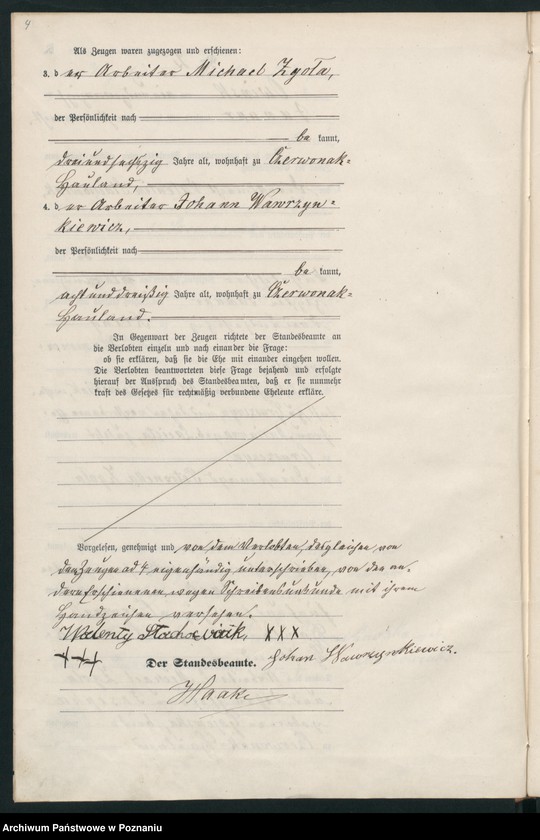 4
Als Zeugen waren zugezogen und erschienen:
3. der Arbeiter Michael Zgola,
der Persönlichkeit nach
be kannt,
dreiundsechzig Jahre alt, wohnhaft zu Czerwonak-
Hauland,
4. der Arbeiter Johann Wawrzyn-
kiewicz,
der Persönlichkeit nach
be kannt,
achtunddreißig Jahre alt, wohnhaft zu Czerwonak-
Hauland.
In Gegenwart der Zeugen richtete der Standesbeamte an
die Verlobten einzeln und nach einander die Frage:
ob sie erklären, daß sie die Ehe mit einander eingehen wollen.
Die Verlobten beantworteten diese Frage bejahend und erfolgte
hierauf der Ausspruch des Standesbeamten, daß er sie nunmehr
kraft des Gesetzes für rechtmäßig verbundene Eheleute erkläre.
Vorgelesen, genehmigt und von dem Verlobten, desgleichen von
dem Zeugen ad 4 eigenhändig unterschrieben, von den an-
dern Erschienenen wegen Schreibensunkunde mit ihrem
Handzeichen versehen.
Walenty Stachowiak, XXX
+++
Johan Wawrzynkiewicz.
Der Standesbeamte.
Haake
Archiwum Państwowe w Poznaniu